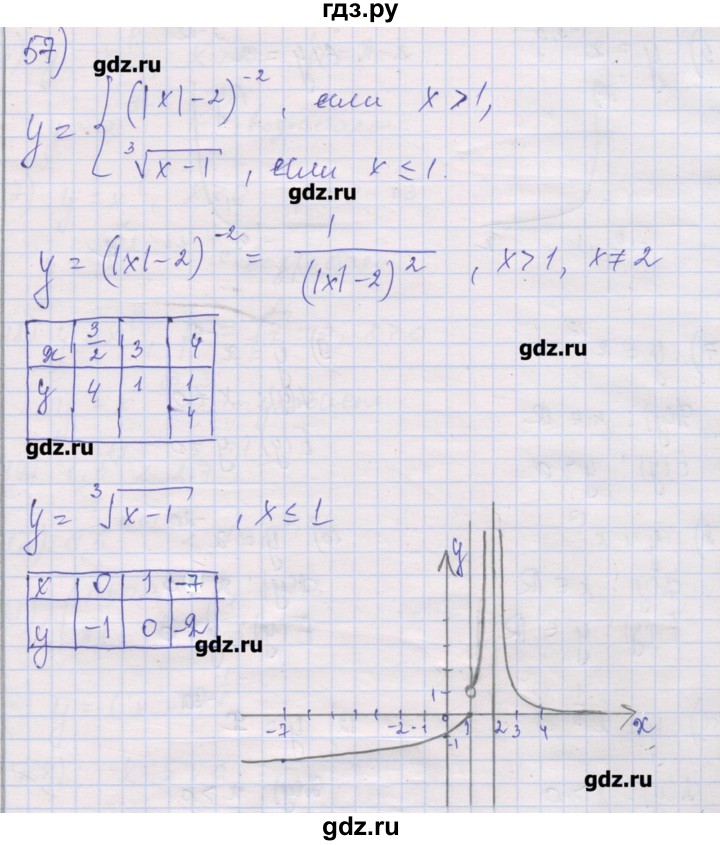 гдз.ру
57)
gdz.ru
y = { (|x|-2)^{-2}, если x > 1,
∛(x-1), если x ≤ 1.
gdz.ru
y = (|x|-2)^{-2} = 1/(|x|-2)^2, x>1, x≠2
x | 3/2 | 3 | 4
gdz.ru
y | 4 | 1 | 1/4
gdz.ru
y = ∛(x-1), x ≤ 1
x | 0 | 1 | -7
y | -1 | 0 | -2
gdz.ru
y
1
-7 -2 -1 0 1 2 3 4 x
-1
gdz.ru
gdz.ru